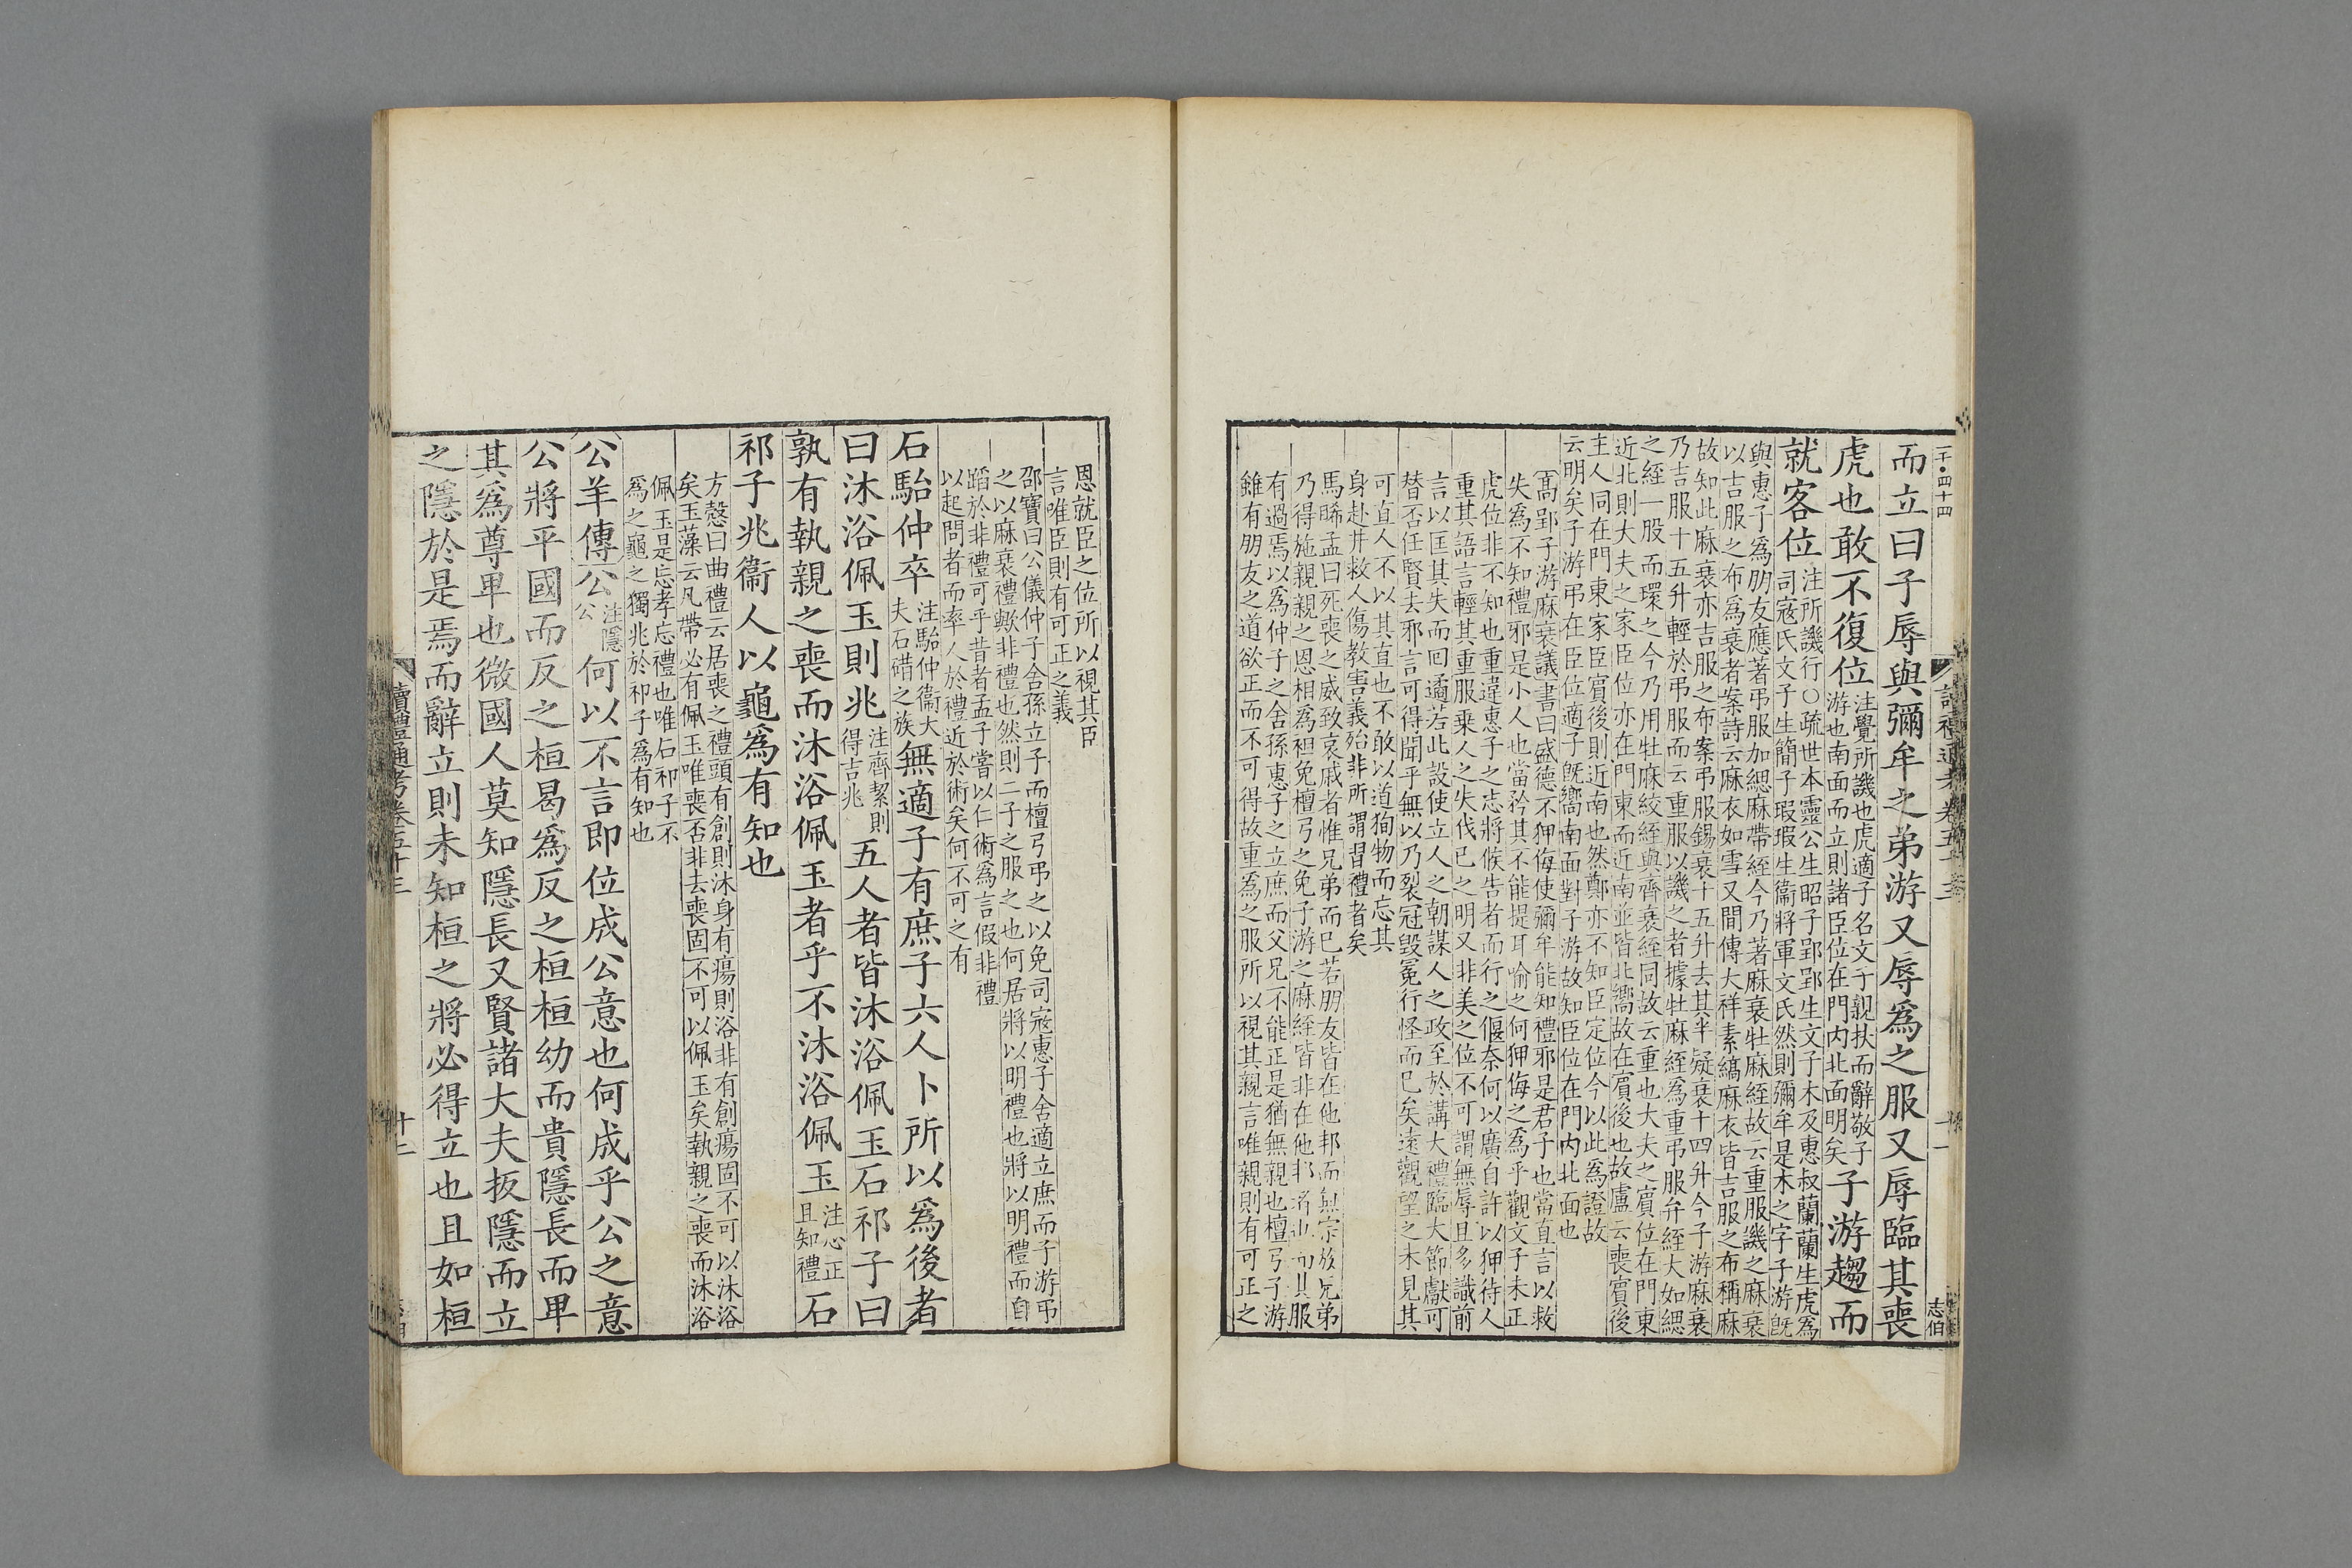 一千●四十四
讀禮通考卷五十三
志伯
而立曰子辱與彌牟之弟游又辱爲之服又辱臨其喪
虎也敢不復位注覺所譏也虎適子名文子親扶而辭敬子
游也南面而立則諸臣位在門内北面明矣子游趨而
就客位注所譏行○疏世本靈公生昭子郢郢生文子木及惠叔蘭蘭生虎爲
司寇氏文子生簡子瑕瑕生衞將軍文氏然則彌牟是木之字子游旣
與惠子爲朋友應著弔服加緦麻帶絰今乃著麻衰牡麻絰故云重服譏之麻衰
以吉服之布爲衰者案詩云麻衣如雪又間傳大祥素縞麻衣皆吉服之布稱麻
故知此麻衰亦吉服之布案弔服錫衰十五升去其半疑衰十四升今子游麻衰
乃吉服十五升輕於弔服而云重服以譏之者據牡麻絰爲重弔服弁絰大如緦
之絰一股而環之今乃用牡麻絞絰與齊衰絰同故云重也大夫之賓位在門東
近北則大夫之家臣位亦在門東而近南並皆北嚮故在賓後也故盧云喪賓後
主人同在門東家臣賓後則近南也然鄭亦不知臣定位今以此爲證故
云明矣子游弔在臣位適子旣嚮南面對子游故知臣位在門内北面也
高郢子游麻衰議書曰盛德不狎侮使彌牟能知禮邪是君子也當直言以救
失爲不知禮邪是小人也當矜其不能提耳喻之何狎侮之爲乎觀文子未正
虎位非不知也重違惠子之志將候告者而行之偃奈何以廣自許以狎待人
重其語言輕其重服乘人之失伐己之明又非美之位不可謂無辱且多識前
言以匡其失而回遹若此設使立人之朝謀人之政至於講大禮臨大節獻可
替否任賢去邪言可得聞乎無以乃裂冠毀冕行怪而已矣遠觀望之未見其
可直人不以其直也不敢以道狥物而忘其
身赴井救人傷教害義殆非所謂習禮者矣
馬晞孟曰死喪之威致哀戚者惟兄弟而已若朋友皆在他邦而無宗族兄弟
乃得施親親之恩相爲袒免檀弓之免子游之麻絰皆非在他邦服
有過焉以爲仲子之舍孫惠子之立庶而父兄不能正是猶無親也檀弓子游
雖有朋友之道欲正而不可得故重爲之服所以視其親言唯親則有可正之
恩就臣之位所以視其臣
言唯臣則有可正之義
邵寶曰公儀仲子舍孫立子而檀弓弔之以免司寇惠子舍適立庶而子游弔
之以麻衰禮歟非禮也然則二子之服之也何居將以明禮也將以明禮而自
蹈於非禮可乎昔者孟子嘗以仁術爲言假非禮
以起問者而率人於禮近於術矣何不可之有
石駘仲卒注駘仲衞大
夫石碏之族無適子有庶子六人卜所以爲後者
曰沐浴佩玉則兆注齊絜則
得吉兆五人者皆沐浴佩玉石祁子曰
孰有執親之喪而沐浴佩玉者乎不沐浴佩玉注心正
且知禮石
祁子兆衞人以龜爲有知也
方慤曰曲禮云居喪之禮頭有創則沐身有瘍則浴非有創瘍固不可以沐浴
矣玉藻云凡帶必有佩玉唯喪否非去喪固不可以佩玉矣執親之喪而沐浴
佩玉是忘孝忘禮也唯石祁子不
爲之龜之獨兆於祁子爲有知也
公羊傳公注隱
公何以不言即位成公意也何成乎公之意
公將平國而反之桓曷爲反之桓桓幼而貴隱長而卑
其爲尊卑也微國人莫知隱長又賢諸大夫扳隱而立
之隱於是焉而辭立則未知桓之將必得立也且如桓
讀禮通考卷五十三
十二